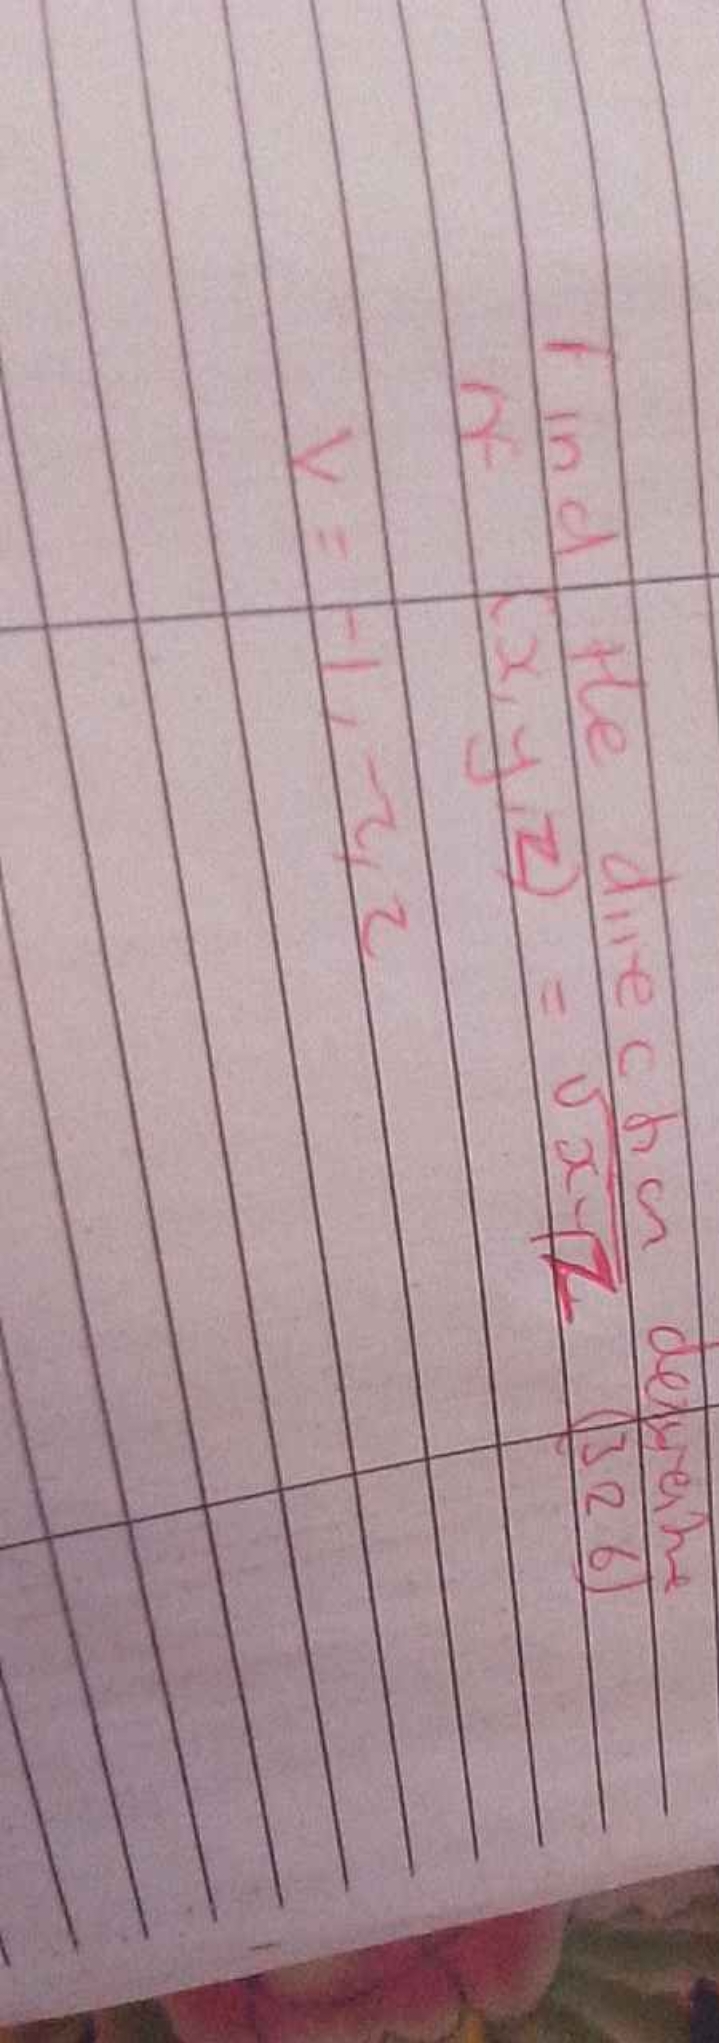 Find the direction derivative
of (x, y, z) = √xyz (3 2 6)
V = -1, -2, 2